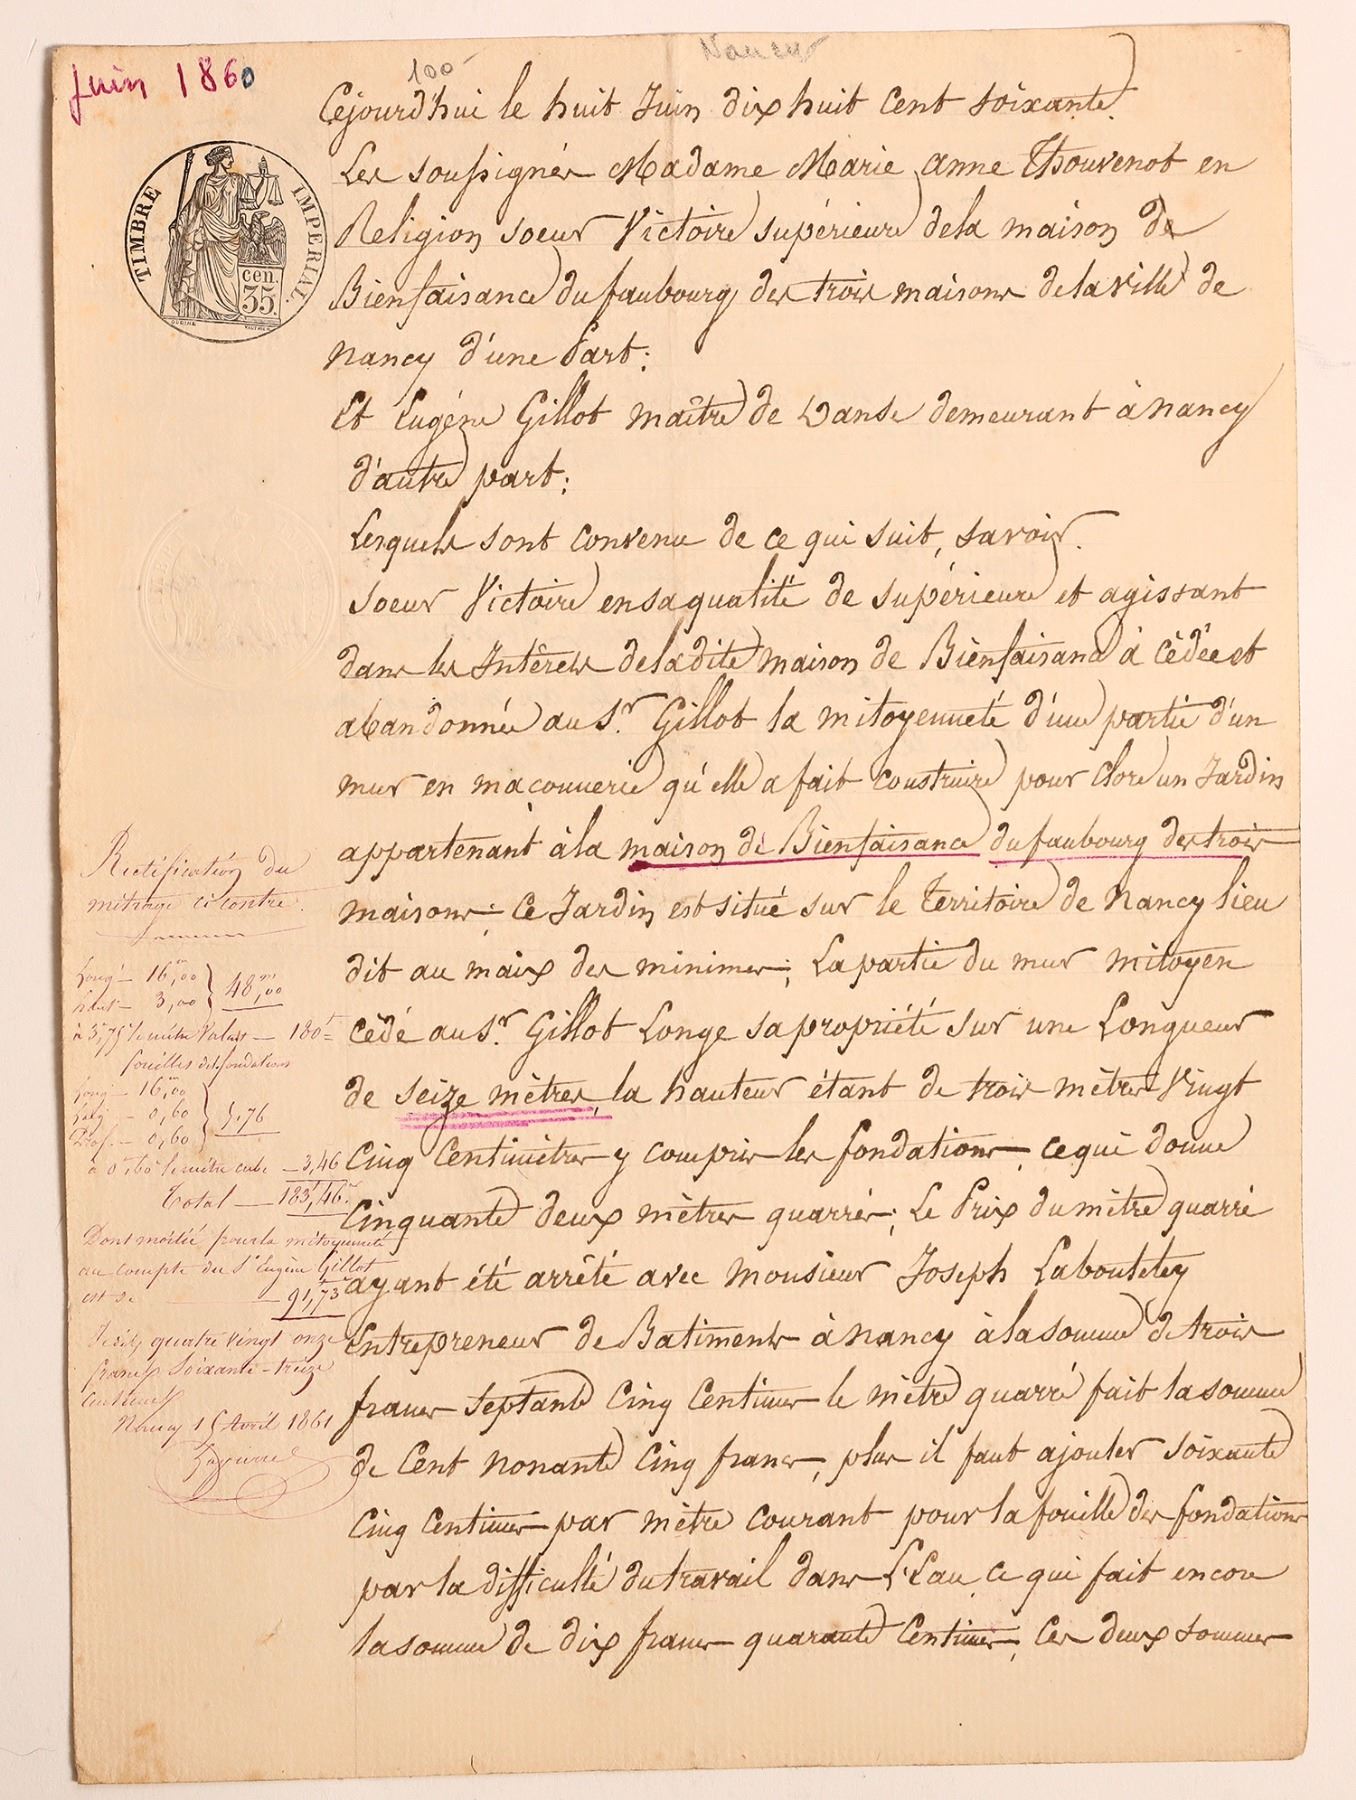 Juin 1860
100
Nancy
TIMBRE IMPERIAL.
cen.
35.
Cejourd'hui le huit Juin dix huit cent soixante.
Les soussignés Madame Marie Anne Thouvenot en
Religion soeur Victoire supérieure dela maison de
Bienfaisance du faubourg des trois maisons de la ville de
Nancy d'une Part;
Et Eugéne Gillot maître de Danse demeurant à Nancy
d'autre part;
Lesquels sont convenu de ce qui suit, savoir.
Soeur Victoire en sa qualité de supérieure et agissant
dans les Intêrets deladite maison de Bienfaisance à cédée et
abandonnée au Sr. Gillot la mitoyenneté d'une partie d'un
mur en maçonnerie qu'elle a fait construire pour clore un Jardin
appartenant à la maison de Bienfaisance du faubourg des trois
maisons; Ce Jardin est situé sur le Territoire de Nancy lieu
dit au maix des minimes; La partie du mur mitoyen
cédé au Sr. Gillot Longe sa propriété sur une Longueur
de seize mètres, la hauteur étant de trois mètres Vingt
Cinq Centimètres y compris les fondations, ce qui donne
Cinquante deux mètres quarrés; Le Prix du mètre quarré
ayant été arrêté avec Monsieur Joseph Laboutetey
Entrepreneur de Batiments à Nancy à la somme de trois
francs Septante Cinq Centimes le mètre quarré fait la somme
de Cent nonante Cinq francs, plus il faut ajouter soixante
Cinq Centimes par mètre courant pour la fouille des fondations
par la difficulté du travail dans L'Eau, ce qui fait encore
la somme de dix francs quarante Centimes; Ces deux sommes
Rectification du
métrage ci contre.
Longr. — 16m,00
hautr — 3,00 } 48m,00
à 3f,75 le mètre Valent — 180f =
fouilles des fondations
Longr — 16m,00
Larg. — 0,60
Prof. — 0,60 } 5.76
à 0f,60 le mètre cube — 3,46
Total — 183f,46c
Dont moitié pour la mitoyenneté
au compte du Sr Eugène Gillot
est de — 91f,73c
quatre vingt onze
francs Soixante-treize
centimes
Nancy 15 Avril 1861